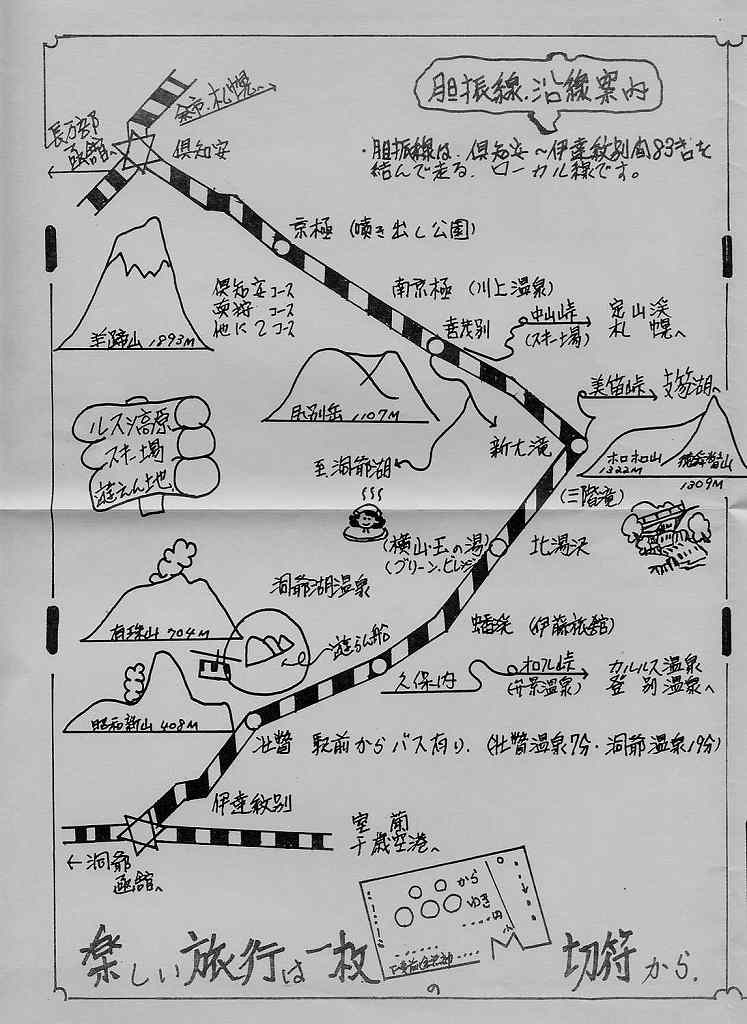 胆振線.沿線案内
・胆振線は、倶知安～伊達紋別間83キロを
結んで走る、ローカル線です。
余市、札幌へ
長万部
函館へ
倶知安
京極 (噴き出し公園)
南京極 (川上温泉)
倶知安コース
真狩 コース
他に2コース
羊蹄山 1893M
喜茂別
中山峠
(スキー場)
定山渓
札幌へ
尻別岳 1107M
美笛峠
支笏湖へ
新大滝
至洞爺湖
ホロホロ山
1322M
徳舜瞥山
1309M
ルスツ高原
スキー場
遊えん地
(三階滝)
(横山・玉の湯)
(グリーン.ビレッジ)
北湯沢
洞爺湖温泉
有珠山 704M
遊らん船
蟠渓 (伊藤旅館)
久保内
オロフレ峠
カルルス温泉
登別温泉へ
昭和新山 408M
壮瞥 駅前からバス有り. (壮瞥温泉7分・洞爺温泉19分)
伊達紋別
室蘭
千歳空港へ
←洞爺
函館へ
から
ゆき
円
楽しい旅行は一枚の切符から.